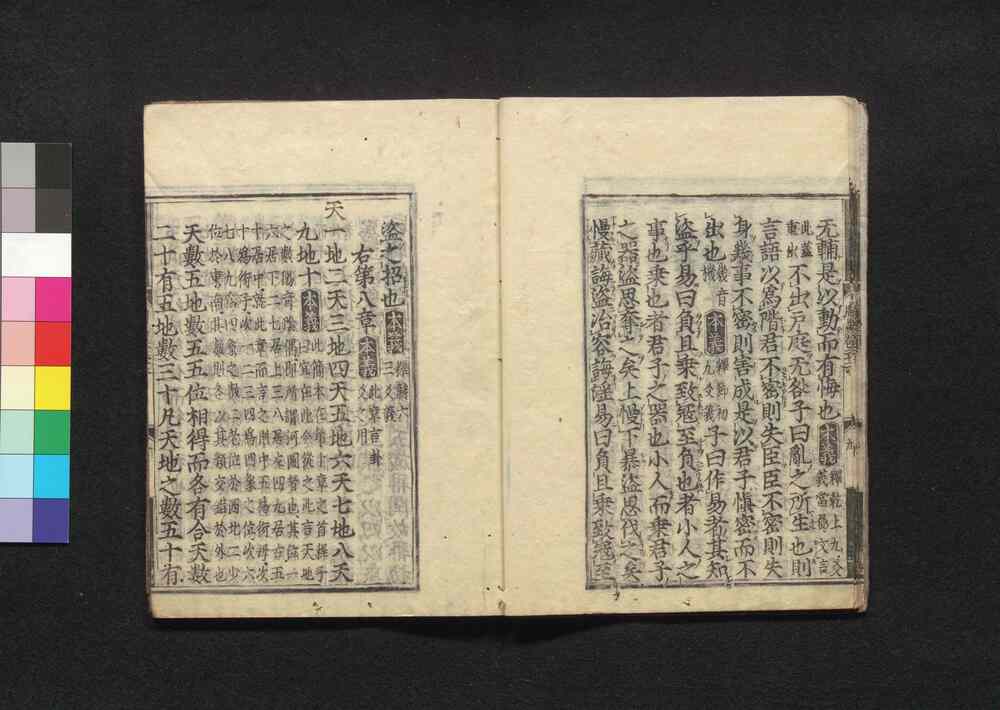 无輔是以動而有悔也本義釋乾上九爻
義當屬文言
此蓋
重出不出戶庭无咎子曰亂之所生也則
言語以爲階君不密則失臣臣不密則失
身幾事不密則害成是以君子愼密而不
出也幾音
機本義釋節初
九爻義子曰作易者其知
盜乎易曰負且乘致寇至負也者小人之
事也乘也者君子之器也小人而乘君子
之器盜思奪之矣上慢下暴盜思伐之矣
慢藏誨盜冶容誨淫易曰負且乘致寇至
盜之招也本義釋解六
三爻義
右第八章本義此章言卦
爻之用
天一地二天三地四天五地六天七地八天
九地十本義此簡本在第十章之首程子
曰宜在此今從之此言天地
之數陽奇陰偶即所謂河圖者也其位一
六居下二七居上三八居左四九居右五
十居中就此章而言之則中五爲衍母次
十爲衍子次一二三四爲四象之位次六
七八九爲四象之數二老位於西北二少
位於東南其數則各以其類交錯於外也
天數五地數五五位相得而各有合天數
二十有五地數三十凡天地之數五十有